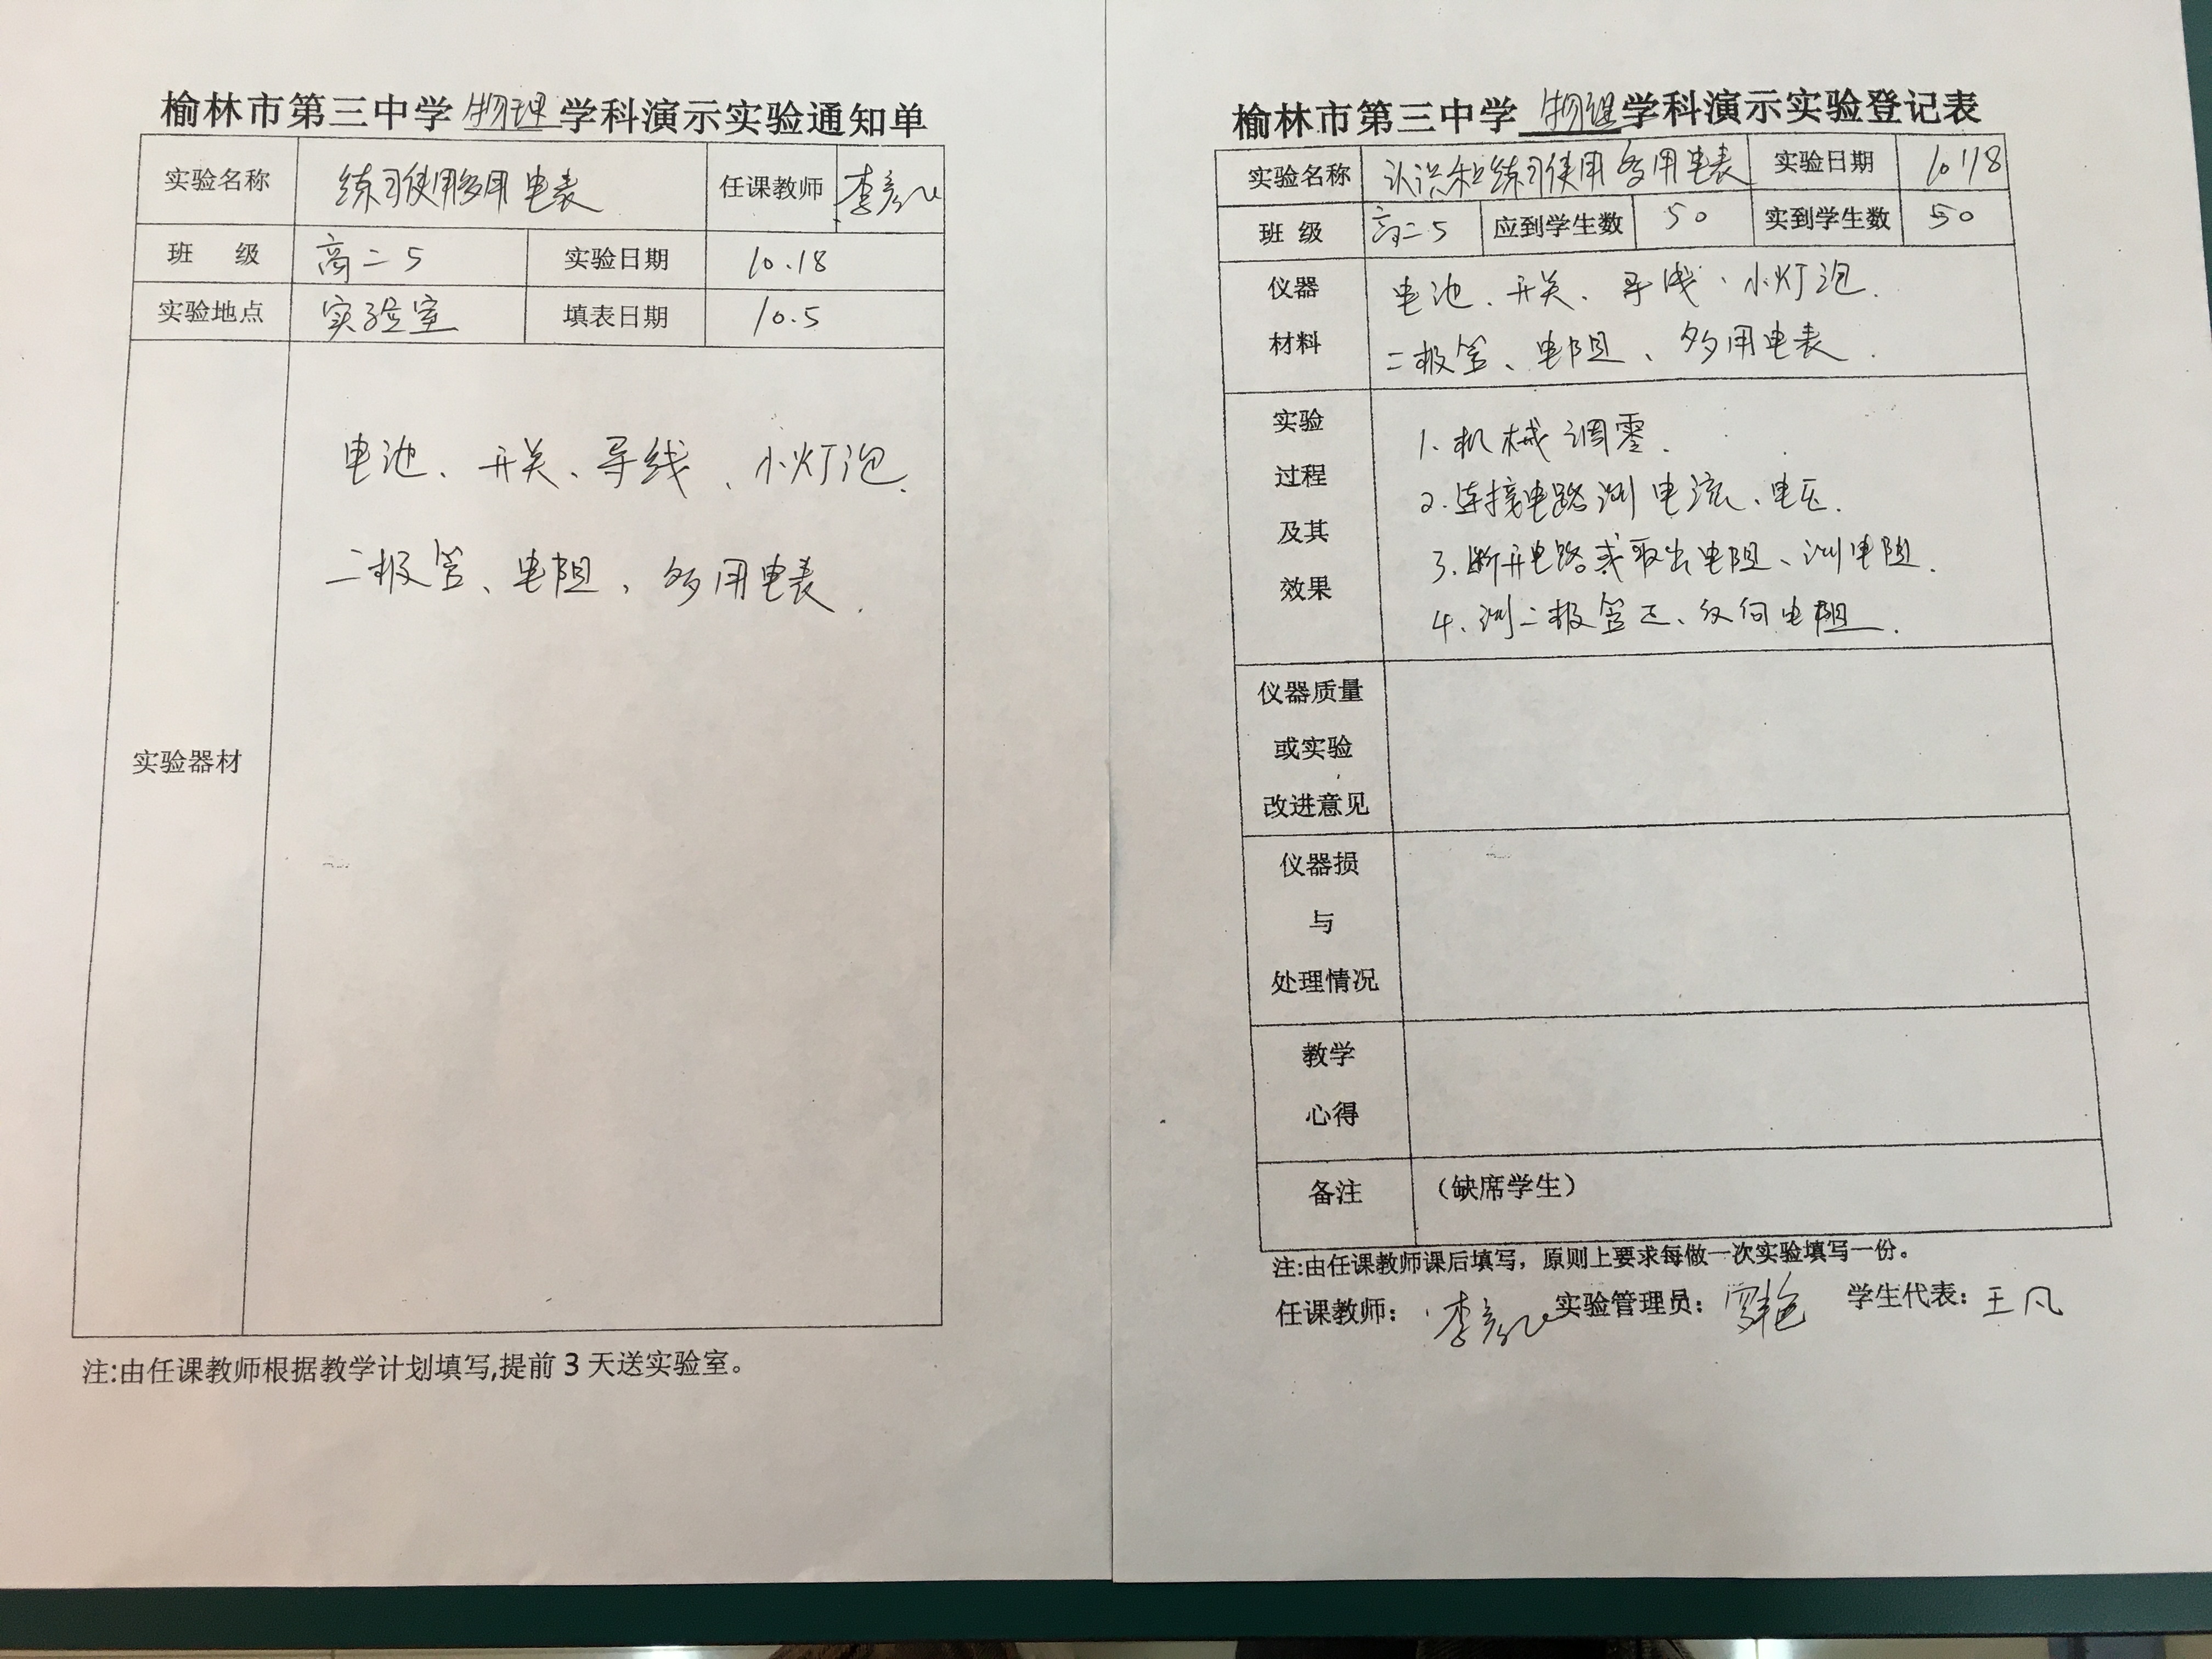 榆林市第三中学 物理 学科演示实验通知单
实验名称 练习使用多用电表 任课教师 李彦
班 级 高二5 实验日期 10.18
实验地点 实验室 填表日期 10.5
实验器材
电池、开关、导线、小灯泡.
二极管、电阻、多用电表.
注:由任课教师根据教学计划填写,提前3天送实验室。
榆林市第三中学 物理 学科演示实验登记表
实验名称 认识和练习使用多用电表 实验日期 10.18
班 级 高二5 应到学生数 50 实到学生数 50
仪器 电池、开关、导线、小灯泡.
材料 二极管、电阻、多用电表.
实验 1.机械调零.
过程 2.连接电路测电流、电压.
及其 3.断开电路或取出电阻、测电阻.
效果 4.测二极管正、反向电阻.
仪器质量
或实验
改进意见
仪器损
与
处理情况
教学
心得
备注 (缺席学生)
注:由任课教师课后填写，原则上要求每做一次实验填写一份。
任课教师: 李彦 实验管理员: 学生代表: 王凡